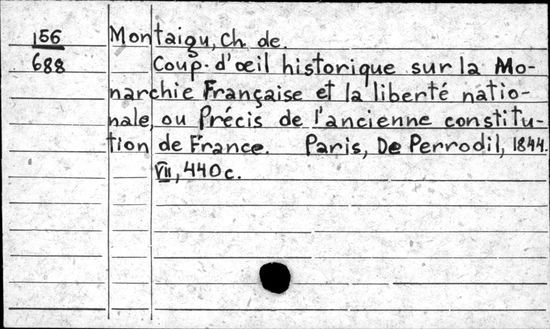 156 Montaigu, Ch. de.
688 Coup-d'œil historique sur la Mo-
narchie Française et la liberté natio-
nale, ou Précis de l'ancienne constitu-
tion de France. Paris, De Perrodil, 1844.
VII, 440 c.